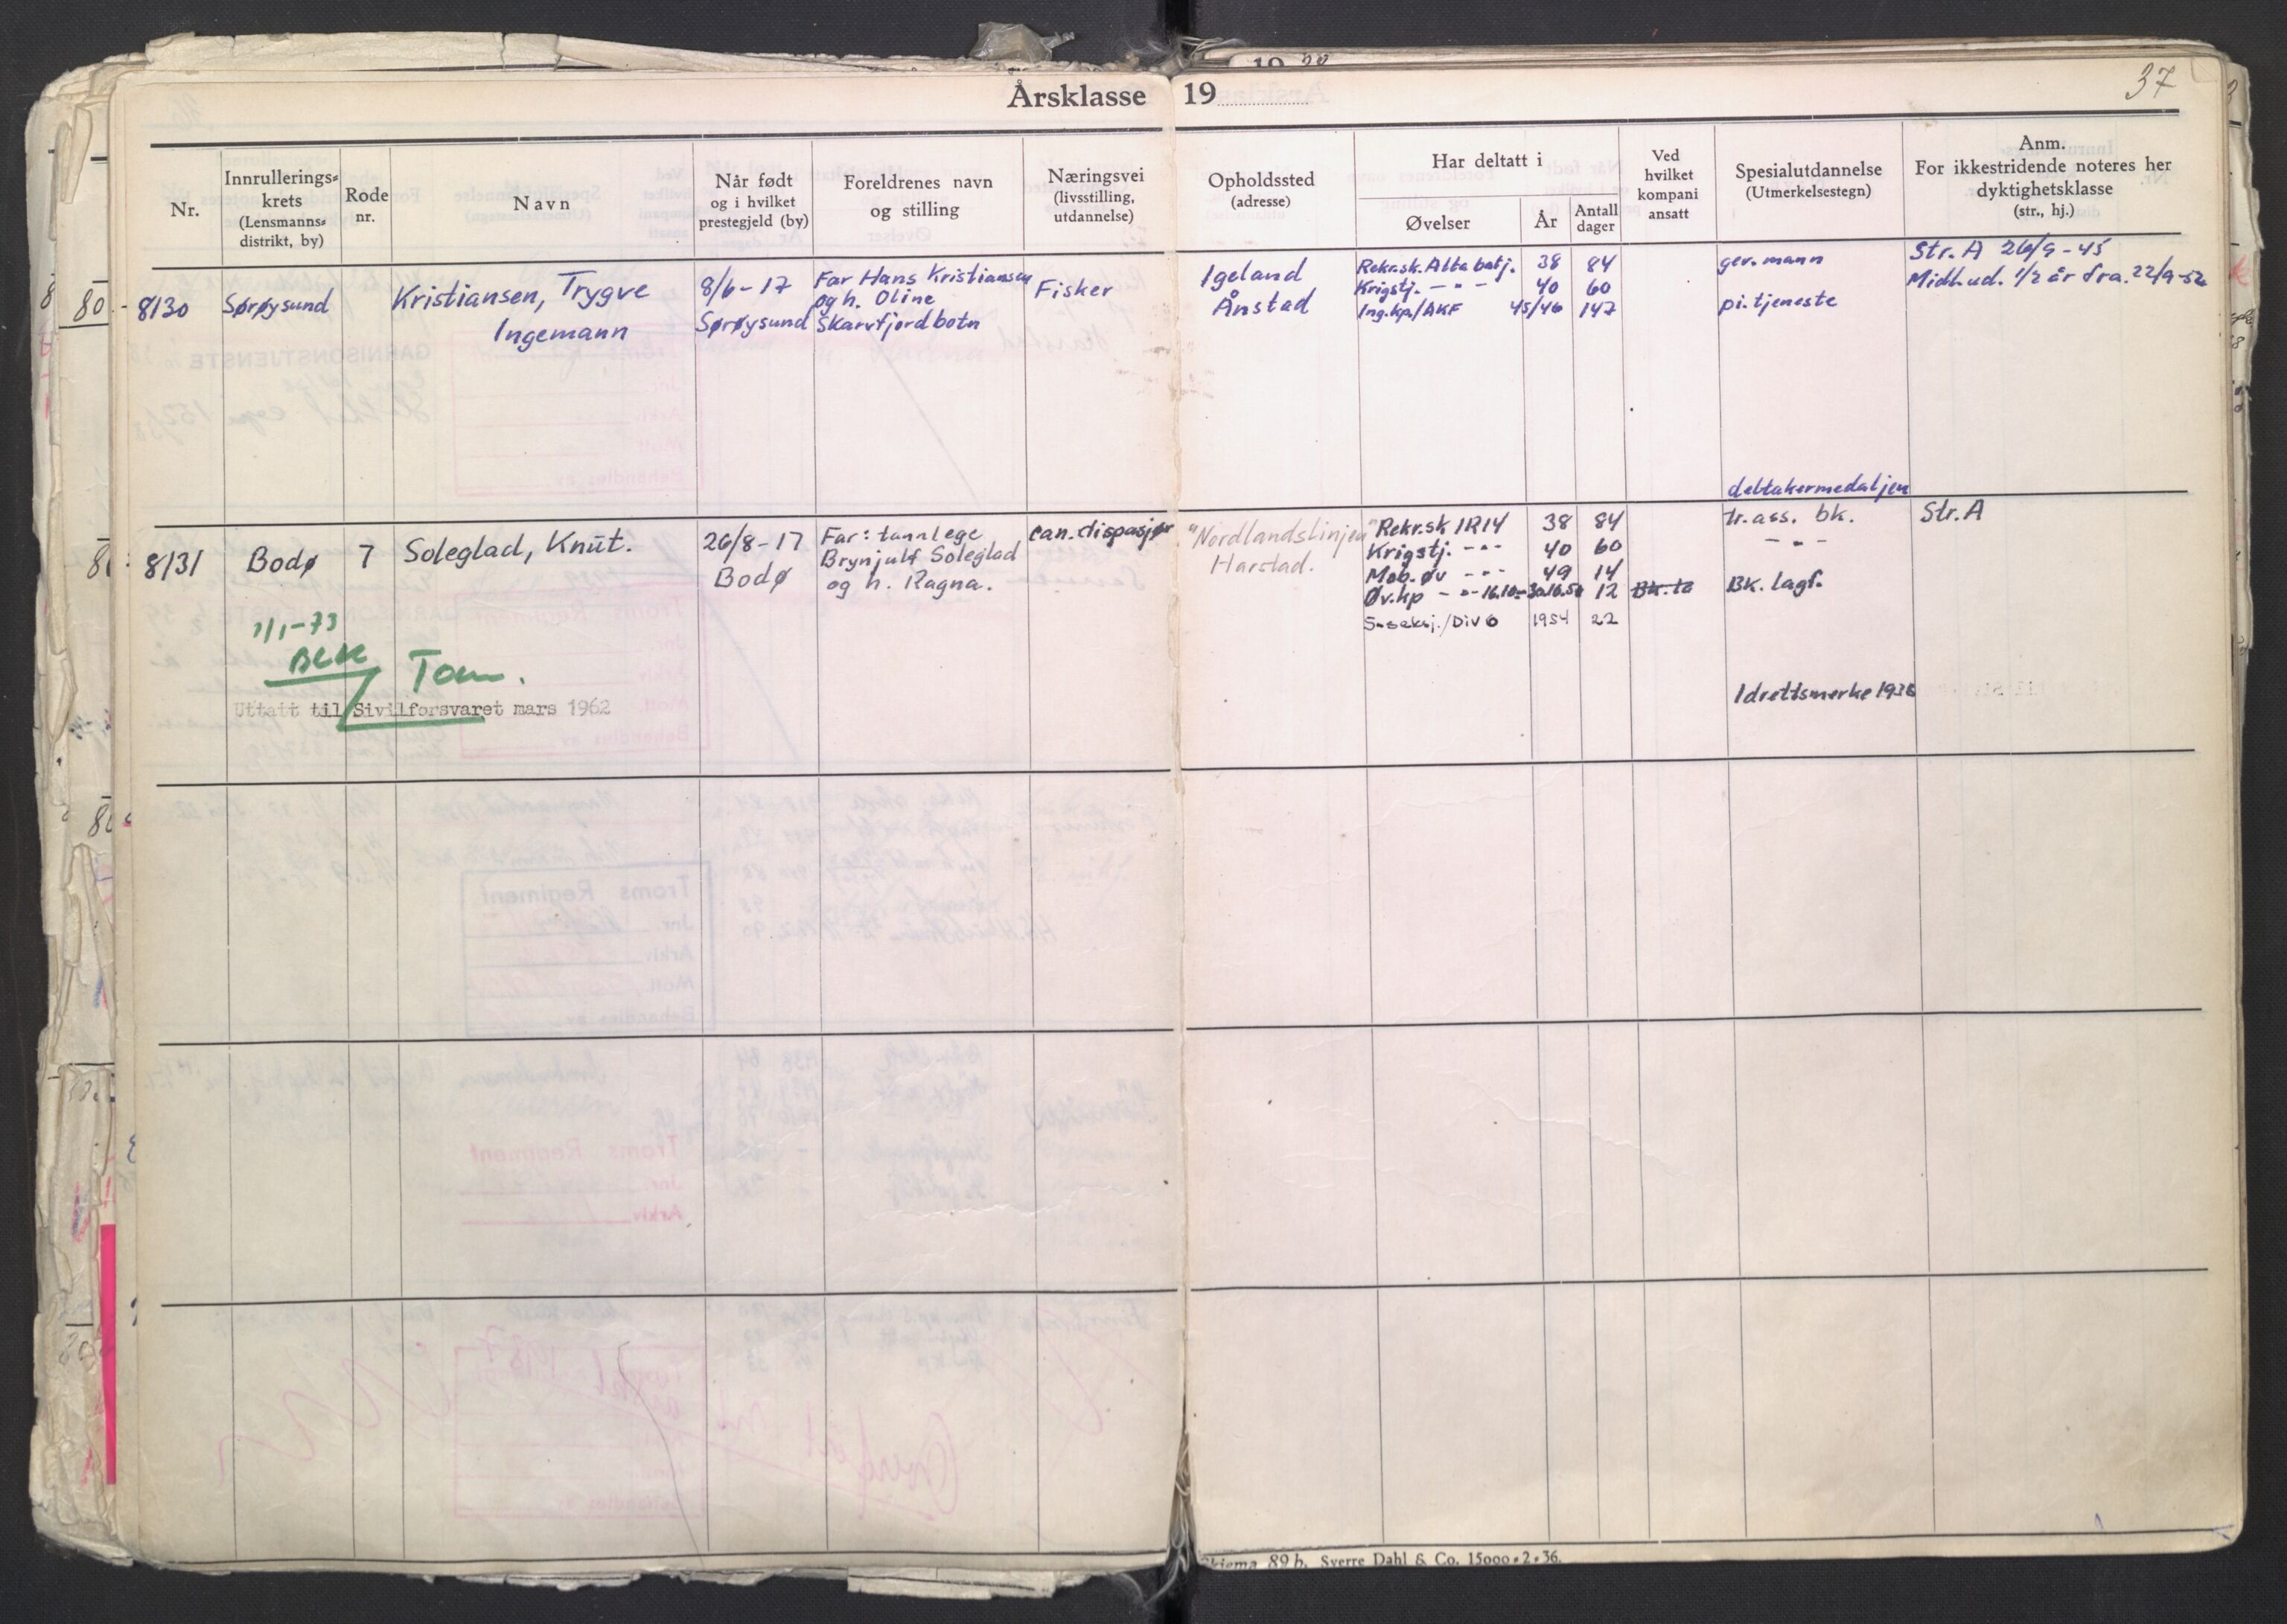 Årsklasse 19
37
Nr.
Innrullerings=
krets
(Lensmanns=
distrikt, by)
Rode
nr.
Navn
Når født
og i hvilket
prestegjeld (by)
Foreldrenes navn
og stilling
Næringsvei
(livsstilling,
utdannelse)
Opholdssted
(adresse)
Har deltatt i
Øvelser
År
Antall
dager
Ved
hvilket
kompani
ansatt
Spesialutdannelse
(Utmerkelsestegn)
Anm.
For ikkestridende noteres her
dyktighetsklasse
(str., hj.)
8130
Sørøysund
Kristiansen, Trygve
Ingemann
8/6-17
Sørøysund
Far Hans Kristiansen
og h. Oline
Skarvfjordbotn
Fisker
Igeland
Ånstad
Rekr.sk. Alta batj. 38 84
Krigstj. - " - 40 60
Ing.kp./AKF 45/46 147
gev.mann
pi.tjeneste
deltakermedaljen
Str. A 26/9-45
Midl.ud. 1/2 år fra. 22/9-52
8131
Bodø
7
Soleglad, Knut.
26/8-17
Bodø
Far: tannlege
Brynjulf Soleglad
og h. Ragna.
can.dispasjør
"Nordlandslinjen"
Harstad.
Rekr.sk IR14 38 84
Krigstj. - " - 40 60
Mob.øv - " - 49 14
Øv.kp - " - 16.10-30.10.50 12
S-seksj./Div 6 1954 22
Bk. to
tr.ass. bk.
- " -
Bk. lagf.
Idrettsmerke 1938
Str. A
1/1-73
Uttatt til Sivilforsvaret mars 1962
Skjema 89 b. Sverre Dahl & Co. 15000.2.36.